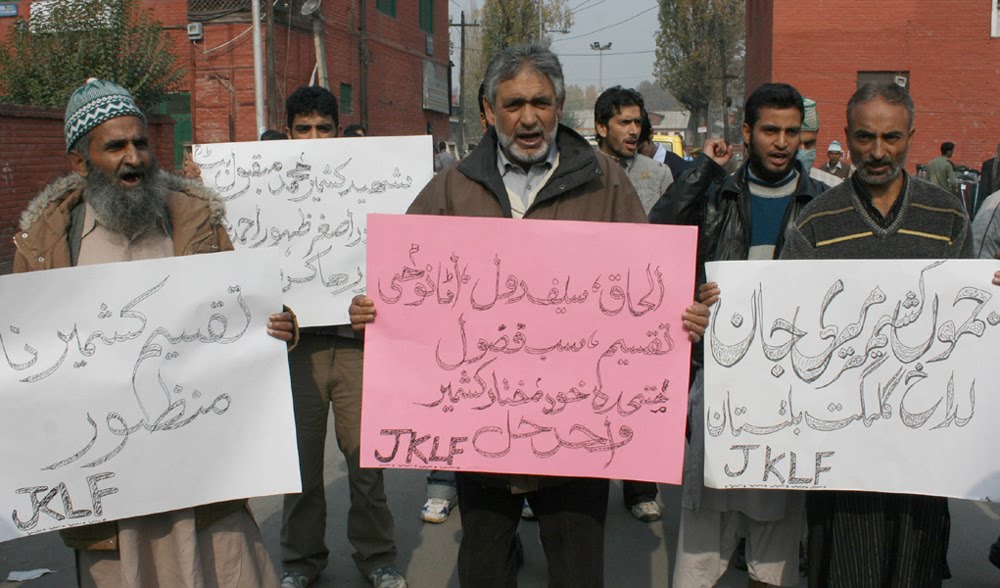 تقسیم کشمیر نا
منظور
JKLF
شہید کشمیر محمد مقبول بٹ
اصغر ظہور احمد
رہا کرو
الحاق، سیلف رول، اٹانومی
تقسیم، سب فضول
متحدہ خود مختار کشمیر
واحد حل
JKLF
جموں کشیر میری جان
لداخ گلگت بلتستان
JKLF